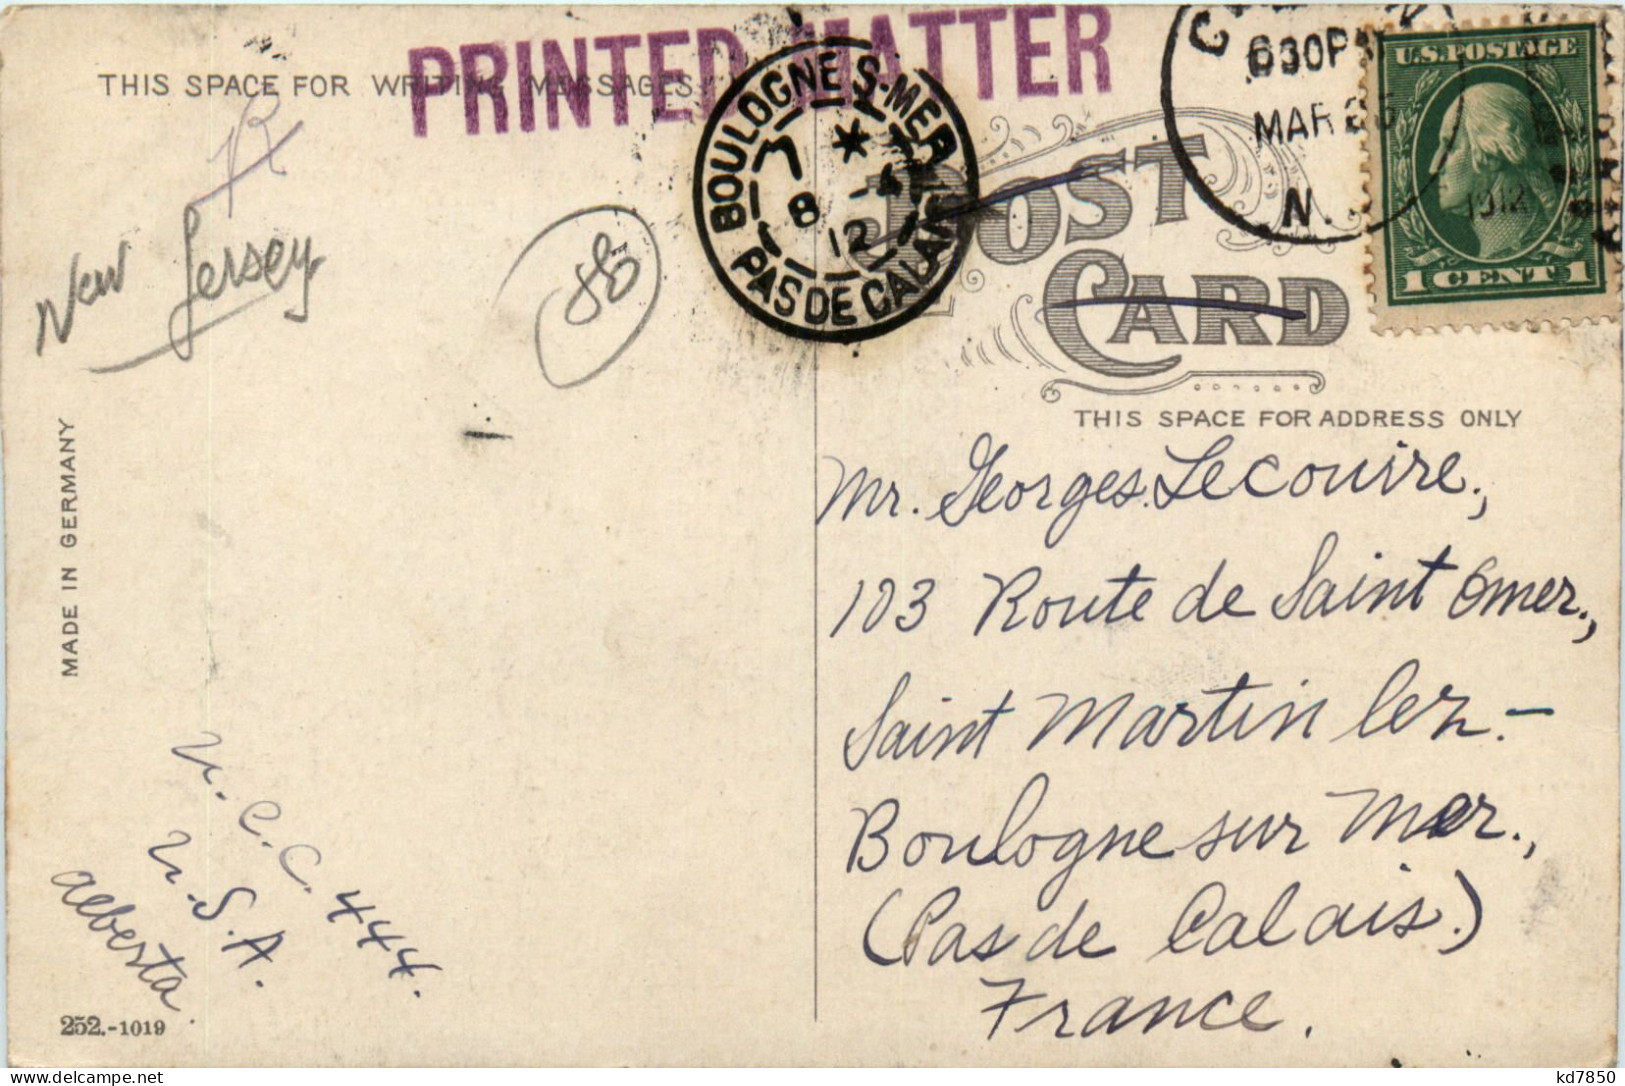 PRINTED MATTER
THIS SPACE FOR WRITING MESSAGES.
BOULOGNE S-MER
PAS DE CALAIS
8 -4
12
630P
MAR 25
1912
N.
U.S. POSTAGE
1 CENT 1
POST
CARD
THIS SPACE FOR ADDRESS ONLY
New Jersey
88
MADE IN GERMANY
Mr. Georges Lecouire,
103 Route de Saint Omer.,
Saint Martin lez-
Boulogne sur Mer.,
(Pas de Calais.)
France.
U.C.C. 444.
U.S.A.
alberta
252.-1019
kd7850